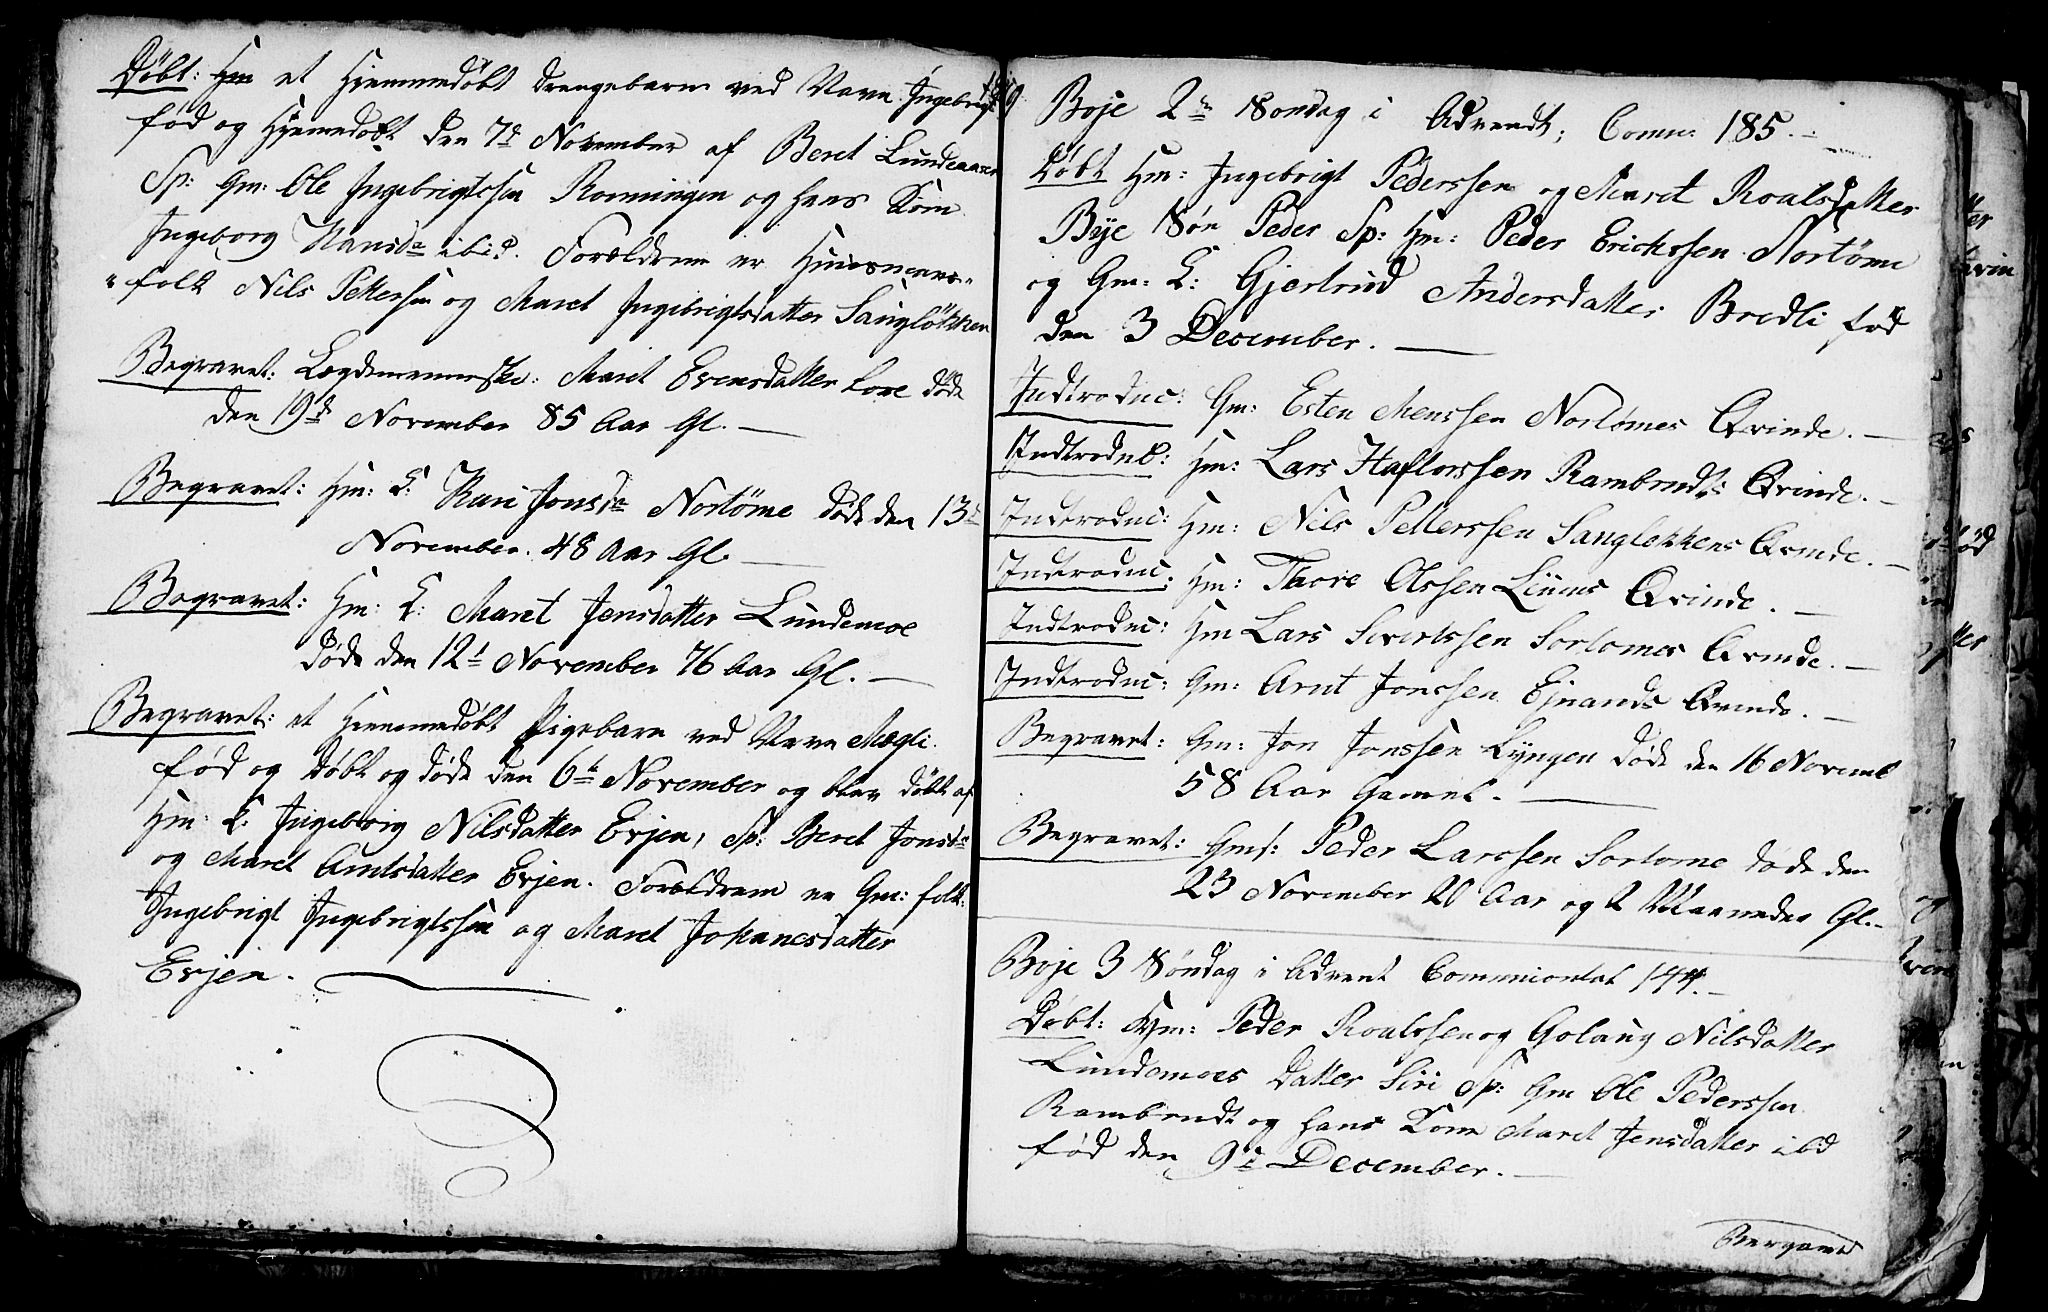 Døbt: Hm et Hjemmedøbt Drengebarn ved Navn Ingebrigt
fød og Hjemedøbt den 7d November af Beret Lundemoe
Sp: Gm: Ole Ingebrigtssen Ronningen og hans Kone
Ingeborg Hansda ibid. Forældrene er Huusmans-
"folk Nils Pettersen og Maret Ingebrigtsdatter Sangløkken
Begravet: Lægdemenniske: Maret Evensdatter Lore døde
den 19d November 85 Aar Gl. —
Begravet: Hm: K: Kari Jonsda Nortøme døde den 13d
November. 48 Aar Gl. —
Begravet: Hm: K: Maret Jensdatter Lundemoe
døde den 12t November 76 Aar Gl. —
Begravet: et Hjemmedøbt Pigebarn ved Navn Magli.
fød og døbt og døde den 6te November og blev døbt af
Hm: K: Ingeborg Nilsdatter Evjen, Sp: Beret Jonsda
og Maret Arntsdatter Evjen. Forældrene er Gm: folk:
Ingebrigt Ingebrigtssen og Maret Johanesdatter
Evjen. —
Boje 2n Søndag i Advendt; Comm: 185. —
Døbt Hm: Ingebrigt Pederssen og Maret Roalsdatter
Bye Søn Peder Sp: Hm: Peder Erichssen Nortøme
og Gm: K: Gjertrud Andersdatter Bredli fød
den 3 December. —
Indtroduc: Gm: Esten Monssen Nortømes Qvinde. —
Indtroduc: Hm: Lars Haftorssen Rambendts Qvinde. —
Indtroduc: Hm: Nils Petterssen Sanglekkens Qvinde. —
Indtroduc: Hm: Thore Olssen Qvinde. —
Indtroduc: Hm Lars Sivertssen Sortomes Qvinde. —
Indtroduc: Gm: Arnt Jonssen Qvinde. —
Begravet: Gm: Jon Jonssen Lyngen døde den 16 Novemb
58 Aar Gamel. —
Begravet: Gms: Peder Larssen Sortome døde den
23 November 20 Aar og 2 Maaneder Gl. —
Boje 3 Søndag i Advent Communiontal 144. —
Døbt: Hm: Peder Roalssen og Golaug Nilsdatter
Lundemoes Datter Siri Sp: Gm Ole Pederssen
Rambendt og hans Kone Maret Jensdatter ibid
fød den 9d December. —